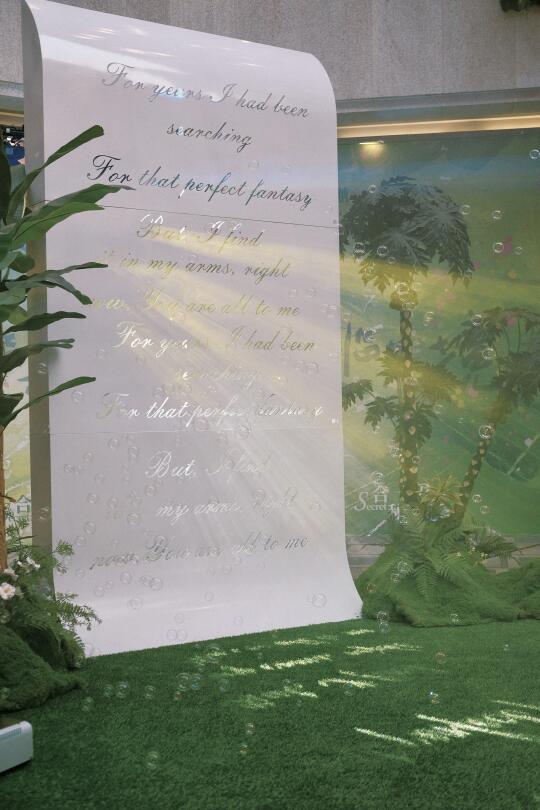 For years I had been
searching
For that perfect fantasy
But, I find
it in my arms, right
now. You are all to me
For years I had been
searching
For that perfect fantasy
But, I find
my arms, right
now. You are all to me
Secret